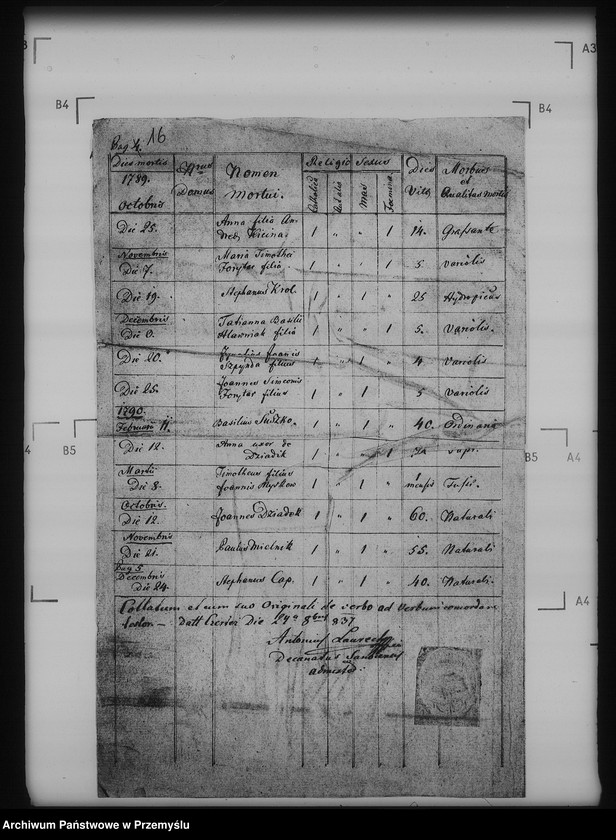 B4
A3
B4
Pag 4. 16
Dies mortis | Nrus Domus | Nomen Mortui. | Religio | Sexus | Dies Vitæ | Morbus et Qualitas mortis
Catholica | aut alia | Mas | Foemina
1789.
Octobris
Die 25. | Anna filia An- | 1 | " | " | 1 | 14. | Grassante
Novembris | Maria Timothei
Die 7. | filia | 1 | " | " | 1 | 5 | Variolis
Die 19. | Stephanus Krol | 1 | " | 1 | " | 25 | Hydropicus
Decembris | Tatianna Basilii
Die 6. | Hlawniak filia | 1 | " | " | 1 | 5. | Variolis.
Die 20. | Ignatius Joannis
Szpynda filius | 1 | " | 1 | " | 4 | Variolis
Joannes Simeonis
Die 25. | filius | 1 | " | 1 | " | 5 | Variolis
1790.
Februarii 11. | Basilius Suszko. | 1 | " | 1 | " | 40. | Ordinaria
Die 12. | Anna uxor de
Dziadik | 1 | " | " | 1
Martii | Timotheus filius | 1
Die 8. | Joannis | 1 | " | 1 | " | mensis | Tussi.
Octobris.
Die 12. | Joannes Dziadek | 1 | " | 1 | " | 60. | Naturali
Novembris
Die 21. | Paulus Mielnik | 1 | " | 1 | " | 55. | Naturali
Pag 5.
Decembris
Die 24. | Stephanus Cap. | 1 | " | 1 | " | 40. | Naturali.
B5
B5
A4
Collatum et cum suo Originali de verbo ad Verbum concordare
Datt Die 29a 8bris 837
Antonius
Decanatus Sanocensis
A4
Archiwum Państwowe w Przemyślu